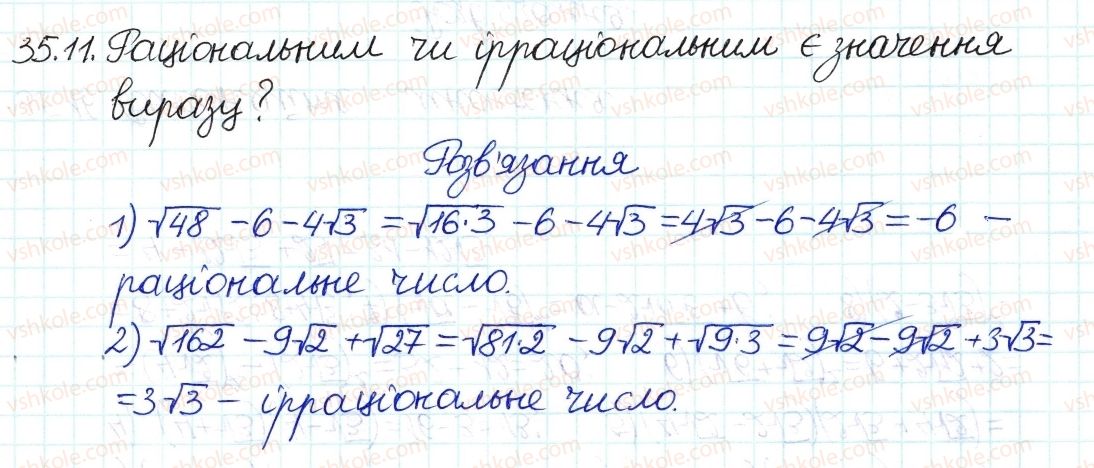 35.11. Раціональним чи ірраціональним є значення
виразу?
Розв'язання
1) √48 - 6 - 4√3 = √16·3 - 6 - 4√3 = 4√3 - 6 - 4√3 = -6 -
раціональне число.
2) √162 - 9√2 + √27 = √81·2 - 9√2 + √9·3 = 9√2 - 9√2 + 3√3 =
= 3√3 - ірраціональне число.